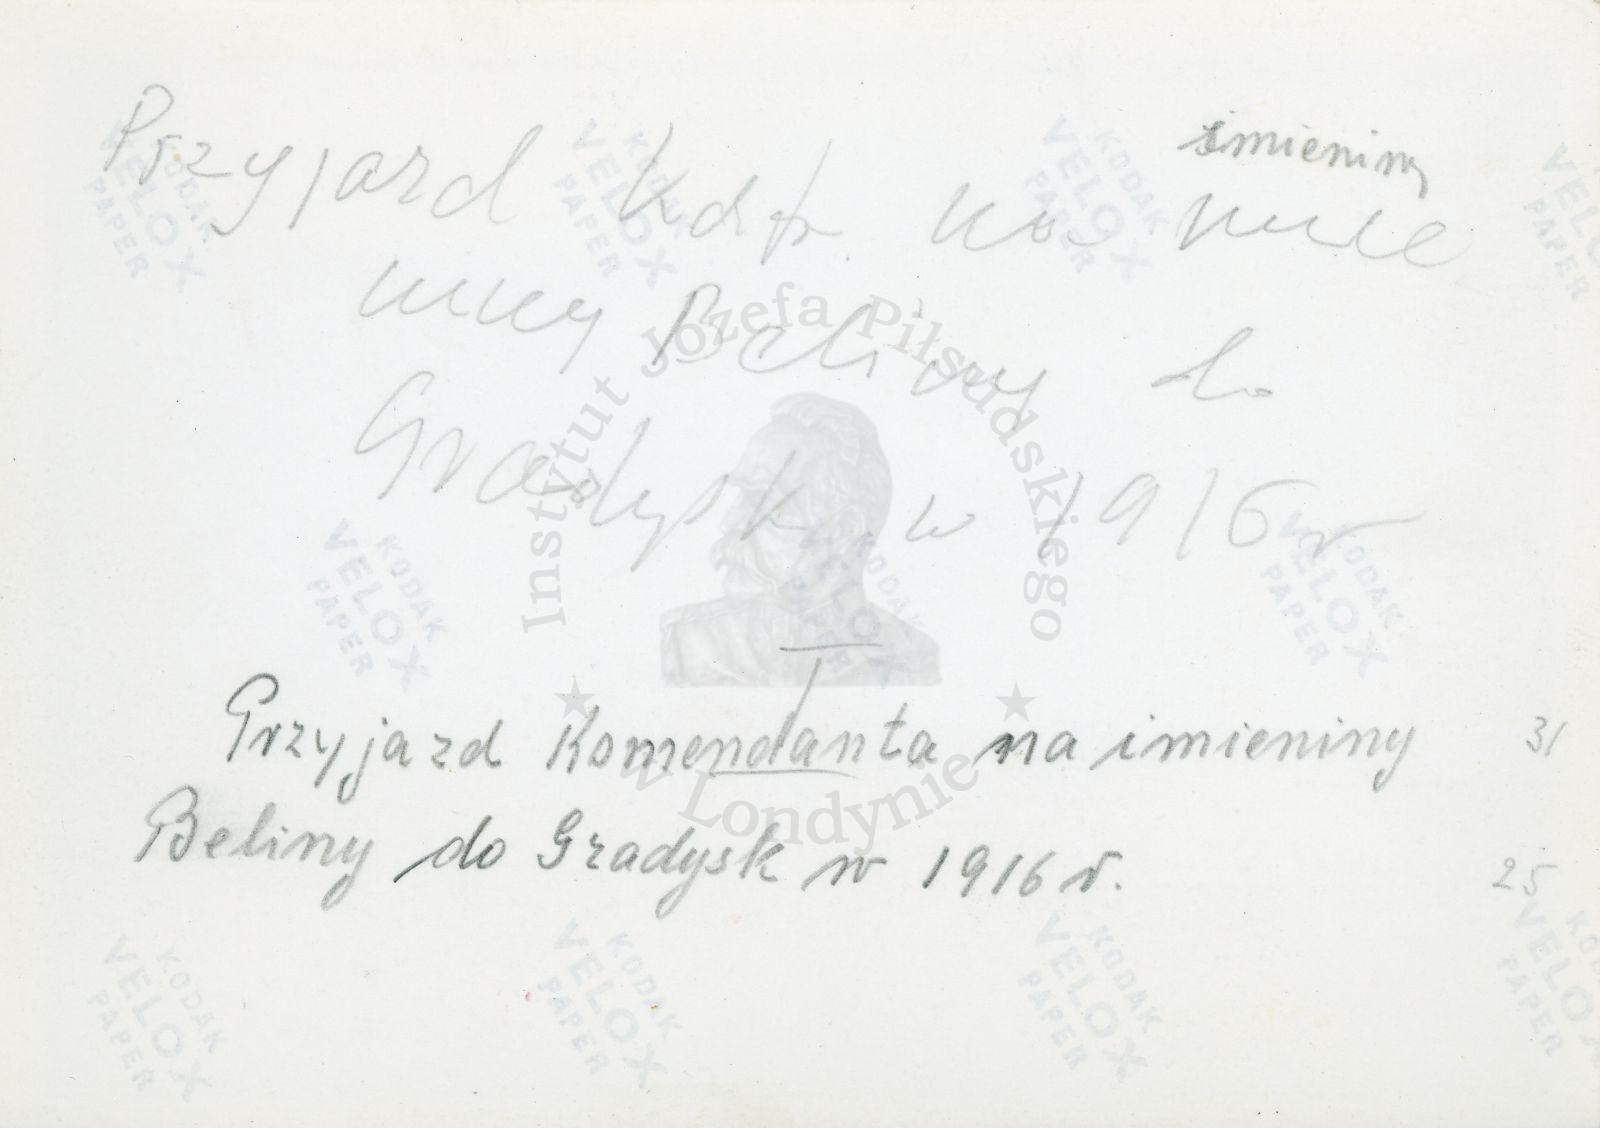 Przyjazd Kdta na imie
imieniny
niny Beliny do
Gradysk w 1916 r
I
Przyjazd Komendanta na imieniny
31
Beliny do Gradysk w 1916 r.
25
Instytut Józefa Piłsudskiego
w Londynie
KODAK
VELOX
PAPER
KODAK
VELOX
PAPER
KODAK
VELOX
PAPER
VELOX
PAPER
KODAK
VELOX
PAPER
KODAK
VELOX
PAPER
KODAK
VELOX
PAPER
KODAK
VELOX
PAPER
KODAK
VELOX
PAPER
KODAK
VELOX
PAPER
VELOX
PAPER